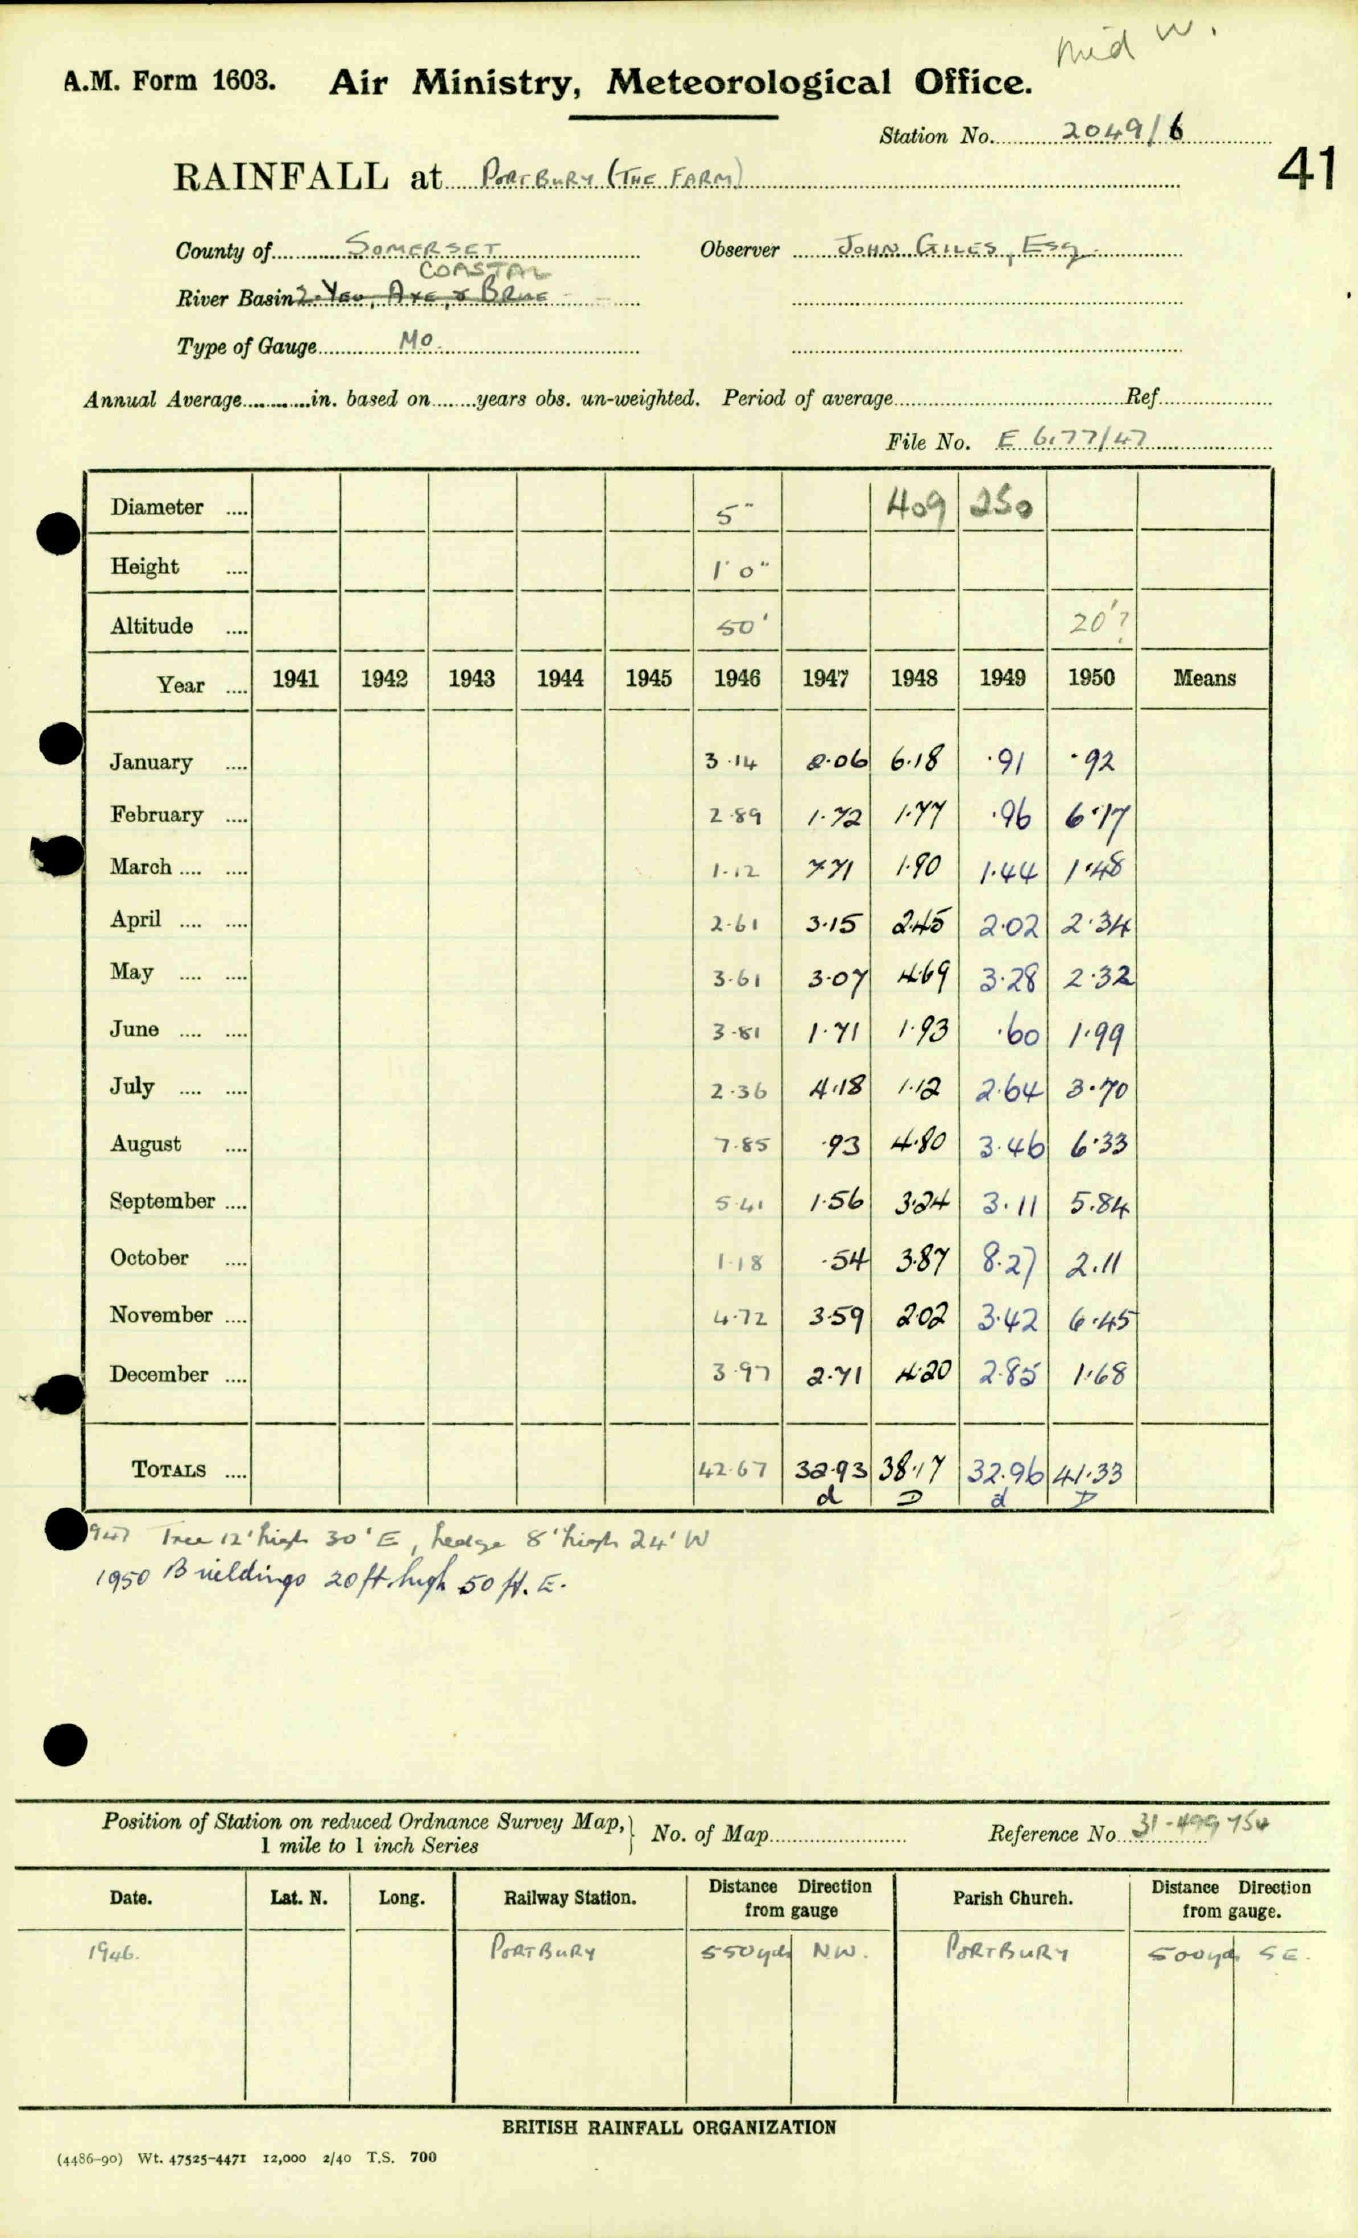 Mid W.
A.M. Form 1603. Air Ministry, Meteorological Office.
Station No. 2049/6
41
RAINFALL at PORTBURY (THE FARM)
County of SOMERSET Observer JOHN GILES, Esq.
COASTAL
River Basin 2. Yeo, Axe, & Brue
Type of Gauge MO.
Annual Average in. based on years obs. un-weighted. Period of average Ref
File No. E 6177/47
Diameter .... 5" 409 250
Height .... 1' 0"
Altitude .... 50' 20'?
Year .... 1941 1942 1943 1944 1945 1946 1947 1948 1949 1950 Means
January .... 3.14 2.06 6.18 .91 .92
February .... 2.89 1.72 1.77 .96 6.17
March .... .... 1.12 7.71 1.90 1.44 1.48
April .... .... 2.61 3.15 2.45 2.02 2.34
May .... .... 3.61 3.07 4.69 3.28 2.32
June .... .... 3.81 1.71 1.93 .60 1.99
July .... .... 2.36 4.18 1.12 2.64 3.70
August .... 7.85 .93 4.80 3.46 6.33
September .... 5.41 1.56 3.24 3.11 5.84
October .... 1.18 .54 3.87 8.27 2.11
November .... 4.72 3.59 2.02 3.42 6.45
December .... 3.97 2.71 4.20 2.85 1.68
TOTALS .... 42.67 32.93 38.17 32.96 41.33
d D d D
947 Tree 12' high 30' E, hedge 8' high 24' W
1950 Buildings 20 ft. high 50 ft. E.
Position of Station on reduced Ordnance Survey Map, No. of Map Reference No 31-499754
1 mile to 1 inch Series
Date. Lat. N. Long. Railway Station. Distance Direction from gauge Parish Church. Distance Direction from gauge.
1946. PORTBURY 550 yds NW. PORTBURY 500 yds SE.
BRITISH RAINFALL ORGANIZATION
(4486-90) Wt. 47525-4471 12,000 2/40 T.S. 700